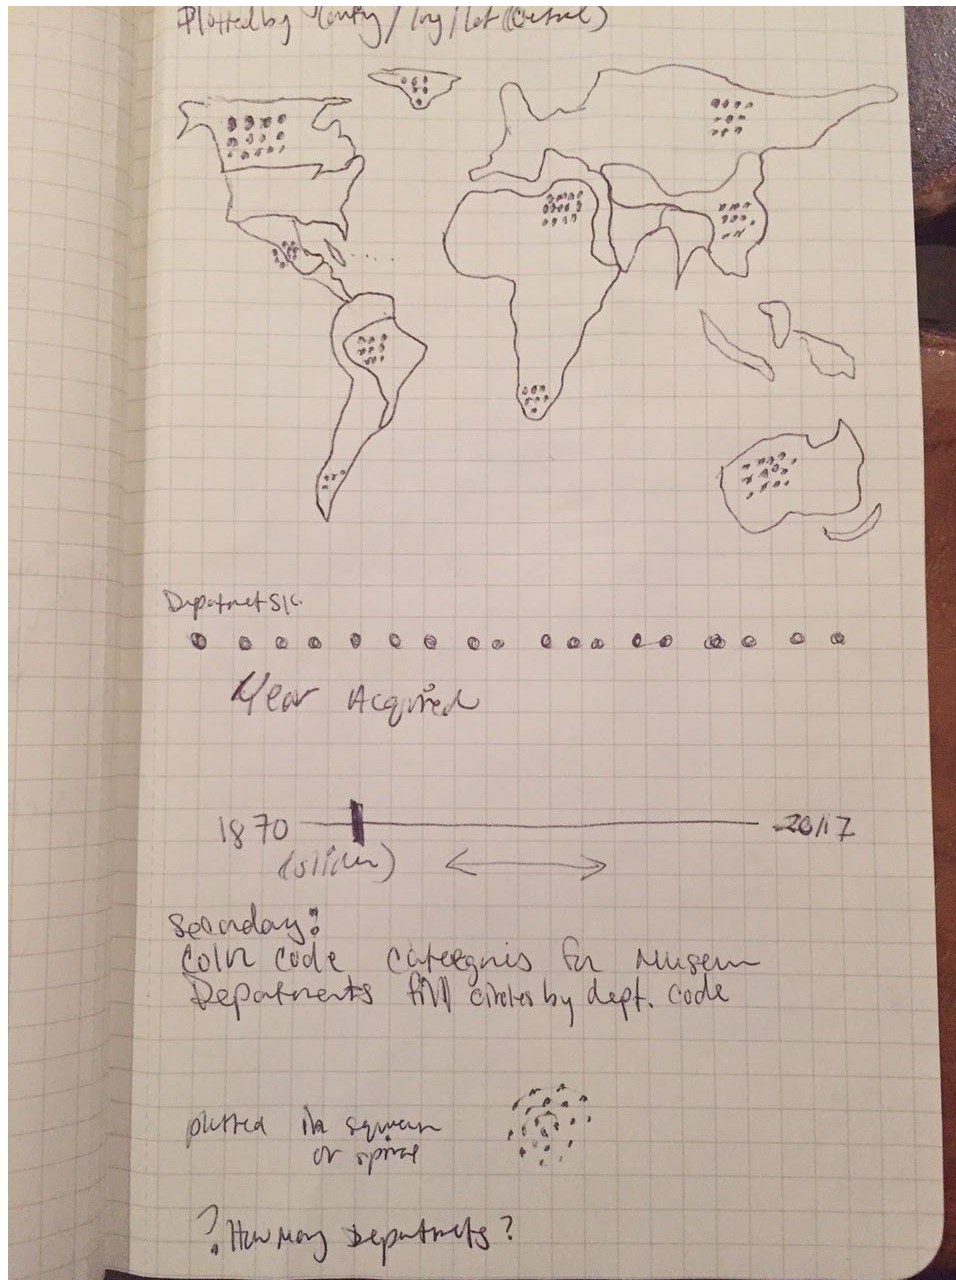 Plotted by County / long / lat (detail)
Year Acquired
1870 2017
(slider)
Secondary:
Color code categories for Museum
Departments fill circles by dept. code
plotted in square
or spiral
? How Many Departments?